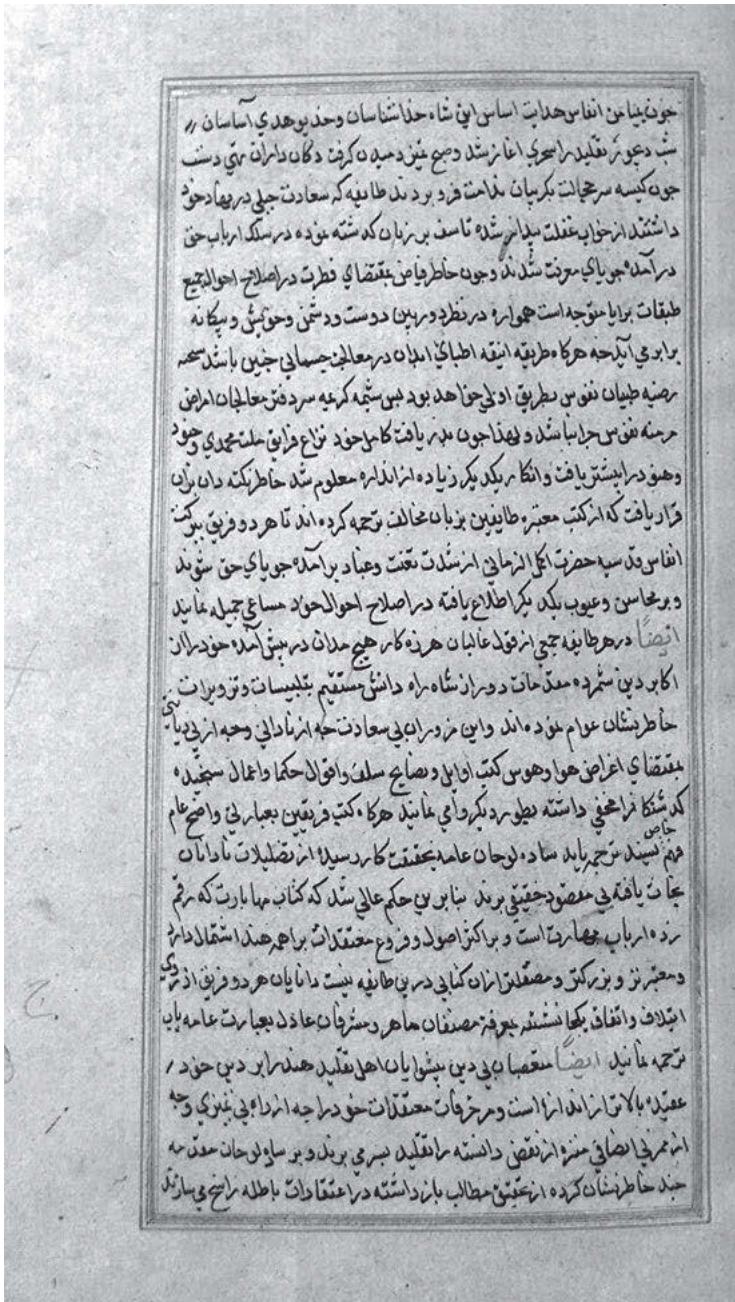 جون بميامن انفاس هدايت اساس اين شاه خداشناسان وخديو هدي آساسان
شب ديجور تقليد را سحري اغاز شد وصبح تميز دميدن كرفت دكان داران تهي دست
جون كيسه سر خجالت بكريبان ندامت فرو بردند طايفه كه سعادت جبلي در نهاد خود
داشتند از خواب غفلت بيدار شده تاسف بر زبان كذشته نموده در سلك ارباب حق
در آمده جوياي معرفت شدند وجون خاطر فياض بمقتضاي فطرت در اصلاح احوال جميع
طبقات برايا متوجه است همواره در نظر دوربين دوست ودشمن وخويش وبيكانه
برابر مي آيد جه هركاه طريقه انيقه اطباي ابدان در معالجه جسماني جنين باشد سجيه
رضيه طبيبان نفوس بطريق اولي خواهد بود بس شيمه كريمه سر دفتر معالجان امراض
مزمنه نفوس جرا نباشد ولهذا جون بدريافت كامل خود نزاع فرايق ملت محمدي وجهود
وهنود را بيشتر يافت وانكار يكديكر زياده از اندازه معلوم شد خاطر نكته دان بران
قرار يافت كه از كتب معتبره طايفتين بزبان مخالف ترجمه كرده اند تا هر دو فريق ببركت
انفاس قدسيه حضرت اكمل الزماني از شدت تعنت وعناد برآمده جوياي حق شوند
وبر محاسن وعيوب يكديكر اطلاع يافته در اصلاح احوال خود مساعي جميله نمايند
ايضاً در هر طايفه جمعي از قول غالبان هرزه كار هيج مدان در بيش آمده خود را از
اكابر دين شمرده مقدمات دور از شاه راه دانش مستقيم بتلبيسات وتزويرات
خاطرنشان عوام نموده اند واين مزوران بي سعادت جه از ناداني وجه از بي ديانتي
بمقتضاي اغراض هوا وهوس كتب اوايل ونصايح سلف واقوال حكما واعمال سنجيده
كذشتكانرا مخفي داشته بطور ديكر وا مي نمايند هركاه كتب فريقين بعبارتي واضح عام
فهم خاص بسند ترجمه يابد ساده لوحان عامه بحقيقت كار رسيده از تضليلات نادانان
نجات يافته بي مقصود حقيقي برند بنابرين حكم عالي شد كه كتاب مهابارت كه رقم
زده ارباب مهارت است وبر اكثر اصول وفروع معتقدات براهمه هند اشتمال دارد
ومعتبرتر وبزركتر ومفصلتر ازان كتابي درين طايفه نيست دانايان هر دو فريق از روي
ايتلاف واتفاق يكجا نشسته بمعرفة مصنفان ماهر ومشرفان عادل بعبارت عامه ياب
ترجمه نمايند ايضاً متعصبان بي دين بيشوايان اهل تقليد هند را بر دين خود
عقيده بالاتر از اندازه است ومزخرفات معتقدات خود را جه از راه بي تميزي وجه
از ممر بي انصافي منزه از نقض دانسته راه تقليد بسر مي برند وبر ساده لوحان مقدمه
جند خاطرنشان كرده از تحقيق مطالب باز داشته در اعتقادات باطله راسخ مي سازند